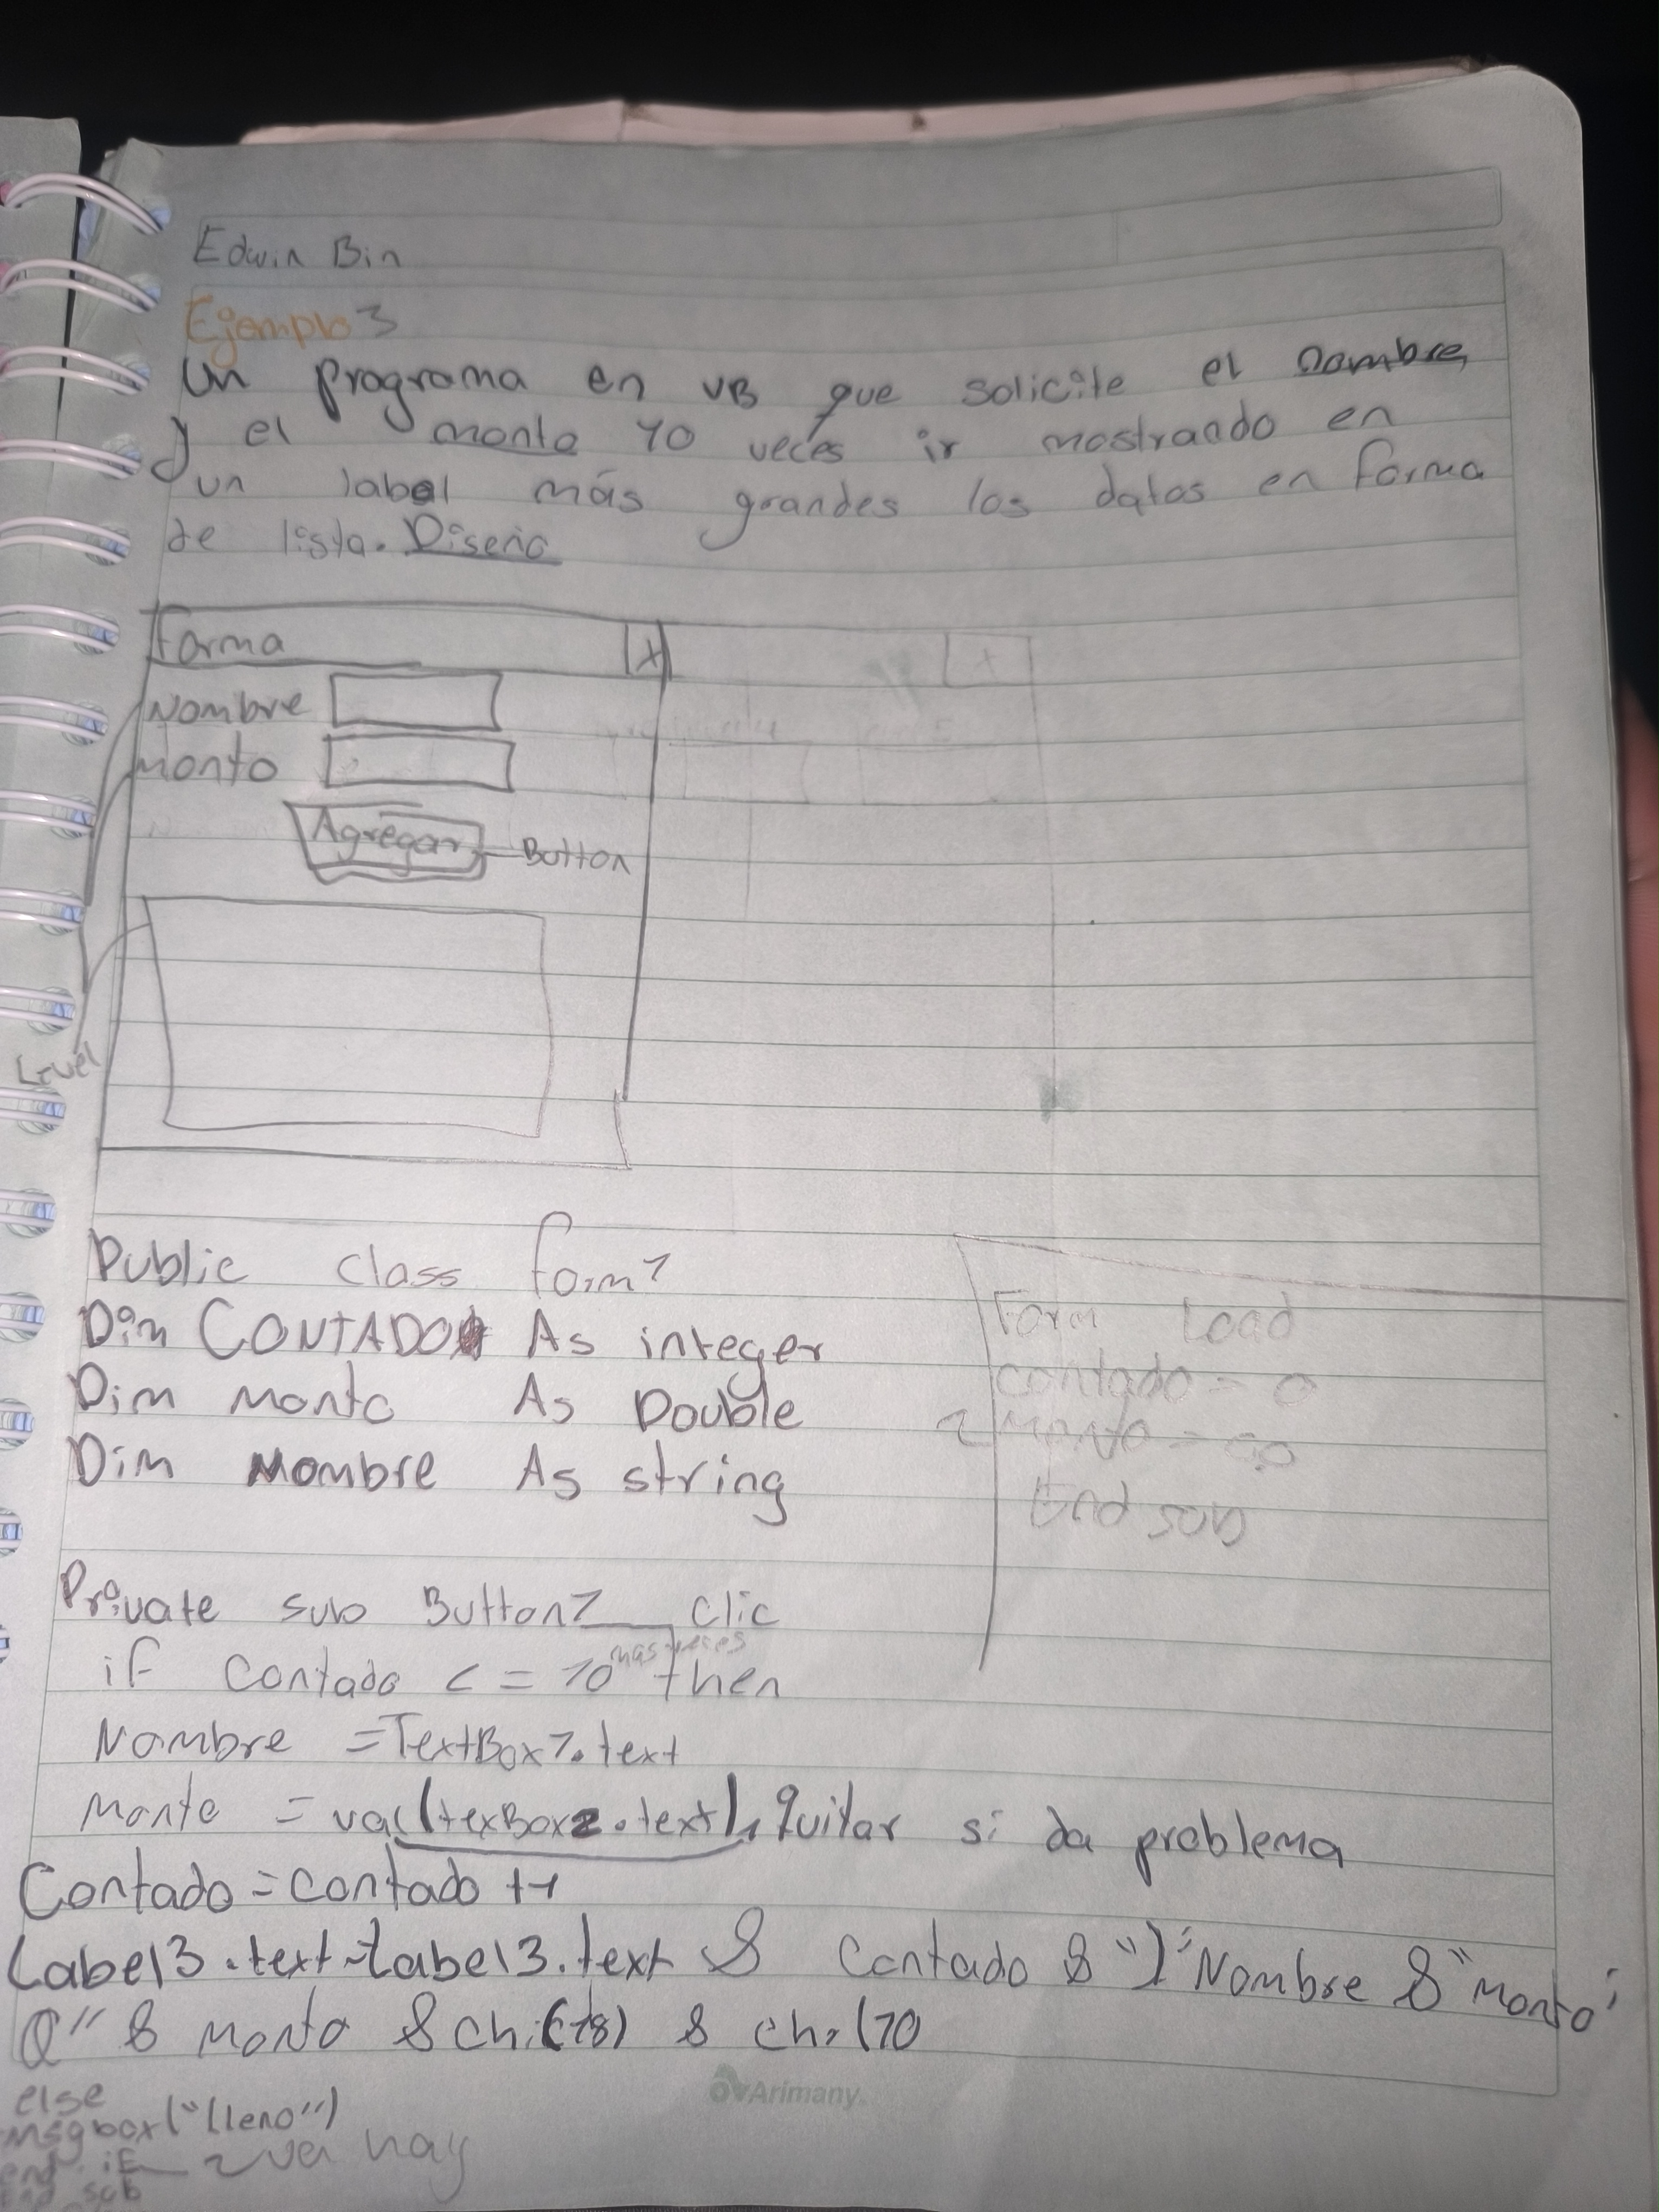 Edwin Bin
Ejemplo 3
Un programa en VB que solicite el nombre
y el monto 10 veces ir mostrando en
un label más grandes los datos en forma
de lista. Diseño
Forma X
Nombre
Monto
Agregar Button
Public class form1
Dim CONTADO As integer
Dim monto As Double
Dim Nombre As string
Form Load
contado = 0
monto = 
End sub
Private sub Button1_clic
mas veces
if contado <= 10 then
Nombre = TextBox1.text
Monto = val(texBox2.text), Quitar si da problema
Contado = contado +1
Label3.text = label3.text & Contado & ")" Nombre & "Monto:
Q" & monto & & chr(10
else
msgbox("lleno")
end if
end sub
Arimany